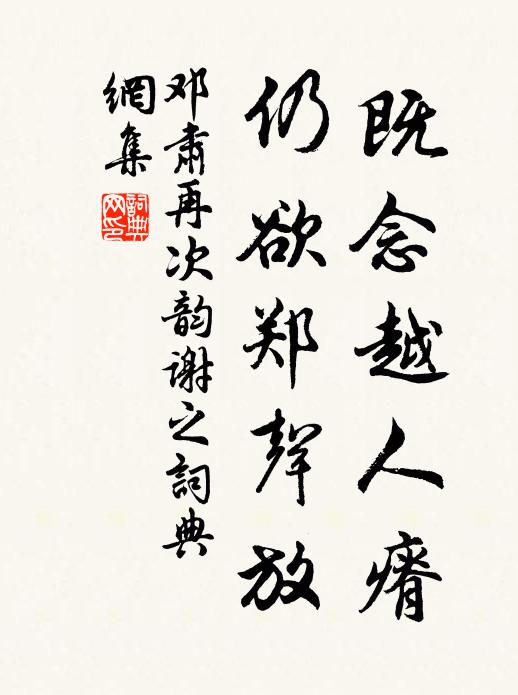 既念越人瘠
仍欲郑聲放
邓肃再次韵谢之詞典
網集
詞典网印